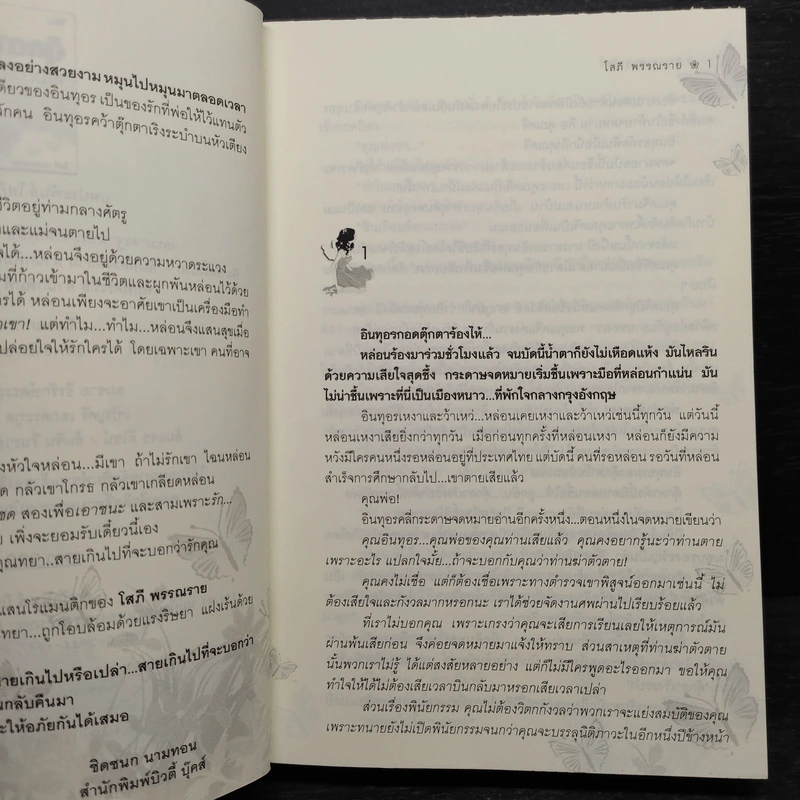 ลงอย่างสวยงาม หมุนไปหมุนมาตลอดเวลา
ดียวของอินทุอร เป็นของรักที่พ่อให้ไว้แทนตัว
ักคน อินทุอรคว้าตุ๊กตาเริงระบำบนหัวเตียง
ชีวิตอยู่ท่ามกลางศัตรู
และแม่จนตายไป
ได้...หล่อนจึงอยู่ด้วยความหวาดระแวง
มที่ก้าวเข้ามาในชีวิตและผูกพันหล่อนไว้ด้วย
ครได้ หล่อนเพียงจะอาศัยเขาเป็นเครื่องมือทำ
แต่ทำไม...ทำไม...หล่อนจึงแสนสุขเมื่อ
ปล่อยใจให้รักใครได้ โดยเฉพาะเขา คนที่อาจ
งหัวใจหล่อน...มีเขา ถ้าไม่รักเขา ไฉนหล่อน
ด กลัวเขาโกรธ กลัวเขาเกลียดหล่อน
สองเพื่อเอาชนะ และสามเพราะรัก...
เพิ่งจะยอมรับเดี๋ยวนี้เอง
คุณทยา...สายเกินไปที่จะบอกว่ารักคุณ
แสนโรแมนติกของ โสภี พรรณราย
ทยา...ถูกโอบล้อมด้วยแรงริษยา แฝงเร้นด้วย
ายเกินไปหรือเปล่า...สายเกินไปที่จะบอกว่า
นกลับคืนมา
ะให้อภัยกันได้เสมอ
ชิดชนก นามทอน
สำนักพิมพ์บิวตี้ บุ๊คส์
โสภี พรรณราย ❀ 1
1
อินทุอรกอดตุ๊กตาร้องไห้...
หล่อนร้องมาร่วมชั่วโมงแล้ว จนบัดนี้น้ำตาก็ยังไม่เหือดแห้ง มันไหลริน
ด้วยความเสียใจสุดซึ้ง กระดาษจดหมายเริ่มชื้นเพราะมือที่หล่อนกำแน่น มัน
ไม่น่าชื้นเพราะที่นี่เป็นเมืองหนาว...ที่พักใจกลางกรุงอังกฤษ
อินทุอรเหงาและว้าเหว่...หล่อนเคยเหงาและว้าเหว่เช่นนี้ทุกวัน แต่วันนี้
หล่อนเหงาเสียยิ่งกว่าทุกวัน เมื่อก่อนทุกครั้งที่หล่อนเหงา หล่อนก็ยังมีความ
หวังมีใครคนหนึ่งรอหล่อนอยู่ที่ประเทศไทย แต่บัดนี้ คนที่รอหล่อน รอวันที่หล่อน
สำเร็จการศึกษากลับไป...เขาตายเสียแล้ว
คุณพ่อ!
อินทุอรคลี่กระดาษจดหมายอ่านอีกครั้งหนึ่ง...ตอนหนึ่งในจดหมายเขียนว่า
คุณอินทุอร...คุณพ่อของคุณท่านเสียแล้ว คุณคงอยากรู้นะว่าท่านตาย
เพราะอะไร แปลกใจมั้ย...ถ้าจะบอกกับคุณว่าท่านฆ่าตัวตาย!
คุณคงไม่เชื่อ แต่ก็ต้องเชื่อเพราะทางตำรวจเขาพิสูจน์ออกมาเช่นนี้ ไม่
ต้องเสียใจและกังวลมากหรอกนะ เราได้ช่วยจัดงานศพผ่านไปเรียบร้อยแล้ว
ที่เราไม่บอกคุณ เพราะเกรงว่าคุณจะเสียการเรียนเลยให้เหตุการณ์มัน
ผ่านพ้นเสียก่อน จึงค่อยจดหมายมาแจ้งให้ทราบ ส่วนสาเหตุที่ท่านฆ่าตัวตาย
นั้นพวกเราไม่รู้ ได้แต่สงสัยหลายอย่าง แต่ก็ไม่มีใครพูดอะไรออกมา ขอให้คุณ
ทำใจให้ได้ไม่ต้องเสียเวลาบินกลับมาหรอกเสียเวลาเปล่า
ส่วนเรื่องพินัยกรรม คุณไม่ต้องวิตกกังวลว่าพวกเราจะแย่งสมบัติของคุณ
เพราะทนายยังไม่เปิดพินัยกรรมจนกว่าคุณจะบรรลุนิติภาวะในอีกหนึ่งปีข้างหน้า